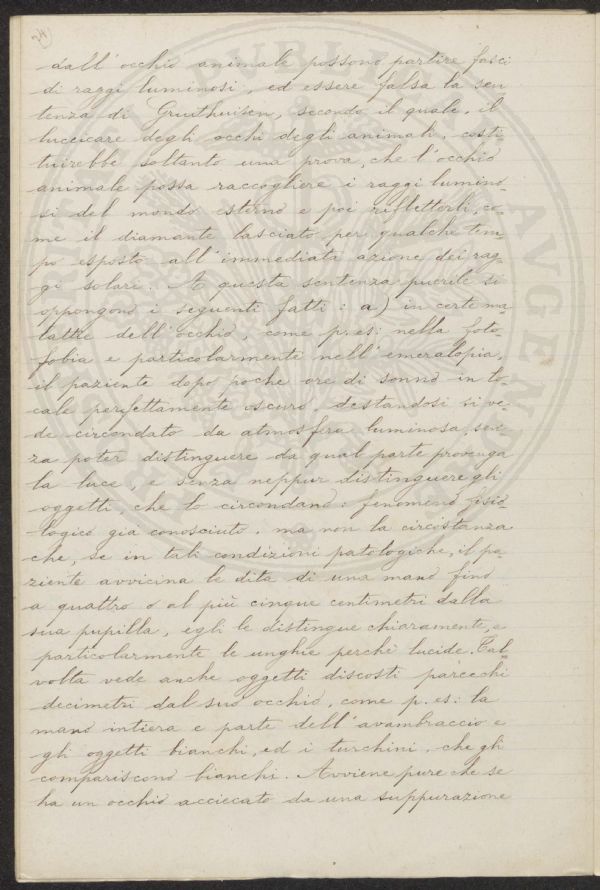 dall'occhio animale possono partire fasci
di raggi luminosi, ed essere falsa la sen
tenza di Gruithuisen, secondo il quale, il
luccicare degli occhi degli animali, costi-
tuirebbe soltanto una prova, che l'occhio
animale possa raccogliere i raggi lumino-
si del mondo esterno e poi rifletterli, co-
me il diamante lasciato per qualche tem-
po esposto all'immediata azione dei rag-
gi solari. A questa sentenza puerile si
oppongono i seguenti fatti: a) in certe ma-
lattie dell'occhio, come p. es: nella foto-
fobia e particolarmente nell'emeralopia,
il paziente dopo poche ore di sonno in lo-
cale perfettamente oscuro, destandosi si ve-
de circondato da atmosfera luminosa, sen-
za poter distinguere da qual parte provenga
la luce, e senza neppur distinguere gli
oggetti, che lo circondano: fenomeno fisio-
logico già conosciuto, ma non la circostanza
che, se in tali condizioni patologiche, il pa-
ziente avvicina le dita di una mano fino
a quattro o al più cinque centimetri dalla
sua pupilla, egli le distingue chiaramente, e
particolarmente le unghie perchè lucide. Tal-
volta vede anche oggetti discosti parecchi
decimetri dal suo occhio, come p. es: la
mano intiera e parte dell'avambraccio e
gli oggetti bianchi, ed i turchini, che gli
compariscono bianchi. Avviene pure che se
ha un occhio acciecato da una suppurazione